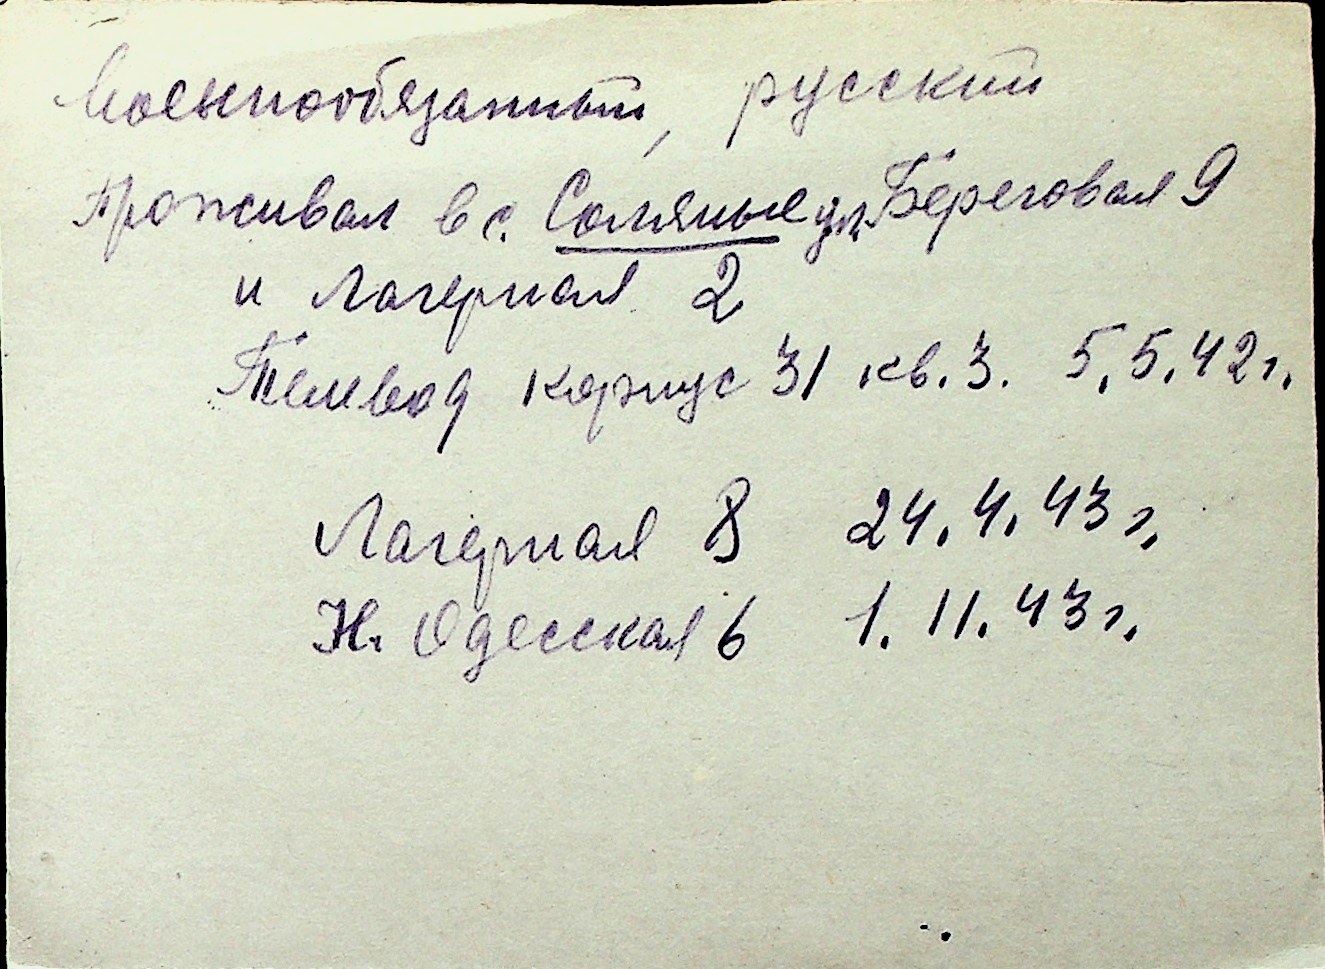 Военнообязанный, русский
Проживал в с. Соляные ул. Береговая 9
и Лагерная 2
Темвод корпус 31 кв. 3. 5.5.42 г.
Лагерная 8 24.4.43 г.
Н. Одесская 6 1.11.43 г.